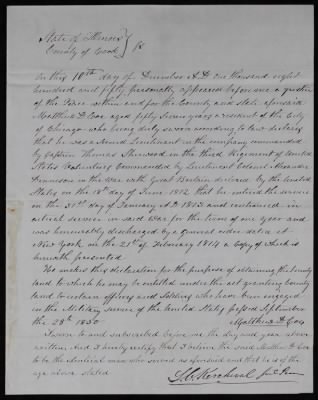 State of Illinois
County of Cook } ss
On this 10th day of December A.D. One thousand eight
hundred and fifty personally appeared before me a justice
of the Peace within and for the County and state aforesaid
Matthew D. Coe aged fifty seven years a resident of the City
of Chicago who being duly sworn according to law declares
that he was a Second Lieutenant in the company commanded
by Captain Thomas Sherwood in the third Regiment of United
States Volunteers commanded by Lieutenant Colonel
in the War with Great Britain declared by the United
States on the 18th day of June 1812 that he entered the service
on the 31st day of January A.D. 1813 and continued in
actual service in said War for the term of one year and
was honorably discharged by a general order dated at
New York on the 21st of February 1814 a copy of which is
herewith presented
He makes this declaration for the purpose of obtaining the bounty
land to which he may be entitled under the act granting bounty
land to certain officers and Soldiers who have been engaged
in the Military service of the United States passed September
the 28th 1850 Matthew D. Coe
Sworn to and subscribed before me the day and year above
written And I hereby certify that I believe the said Matthew D. Coe
to be the identical man who served as aforesaid and that he is of the
age above stated
Kercheval